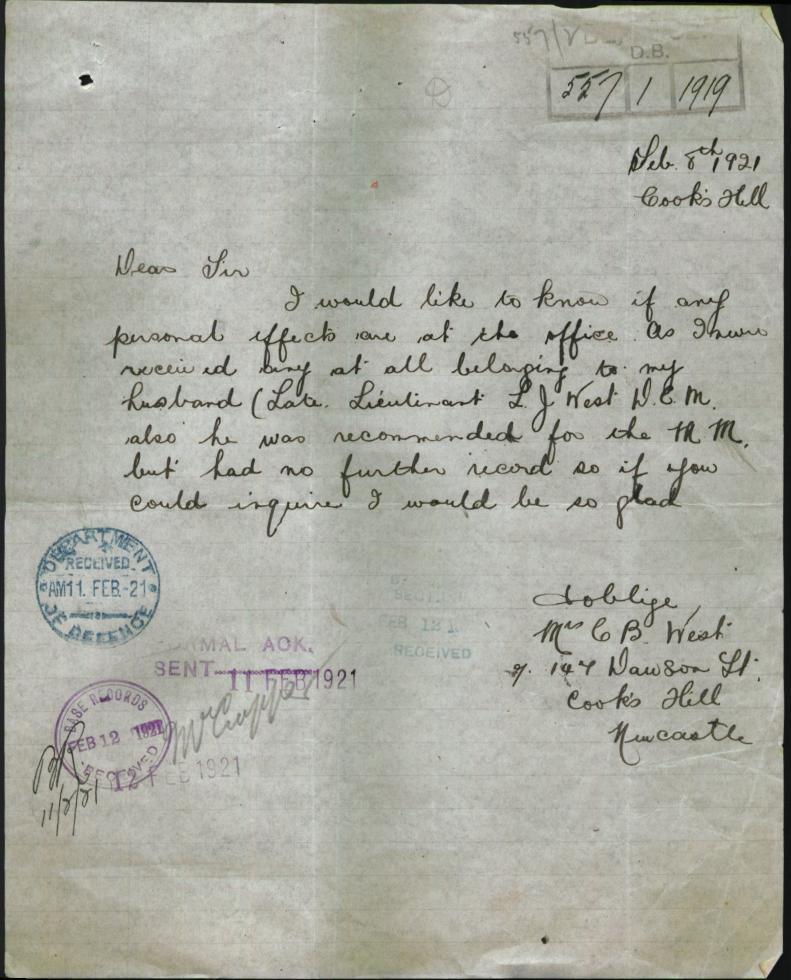 557/1
D.B.
557 1 1919
Feb. 8th 1921
Cook's Hill
Dear Sir
I would like to know if any
personal effects are at the office. As I never
received any at all belonging to my
husband (Late. Lieutinant L. J. West D.C.M.
also he was recommended for the M M.
but had no further record so if you
could inquire I would be so glad
& oblige
Mrs C B. West
147 Dawson St.
Cook's Hill
Newcastle
DEPARTMENT
RECEIVED
AM 11. FEB.-21
OF DEFENCE
FEB 12 1
RECEIVED
FORMAL ACK.
SENT 11 FEB 1921
BASE RECORDS
FEB 12 1921
RECEIVED
12 FEB 1921
11/2/21